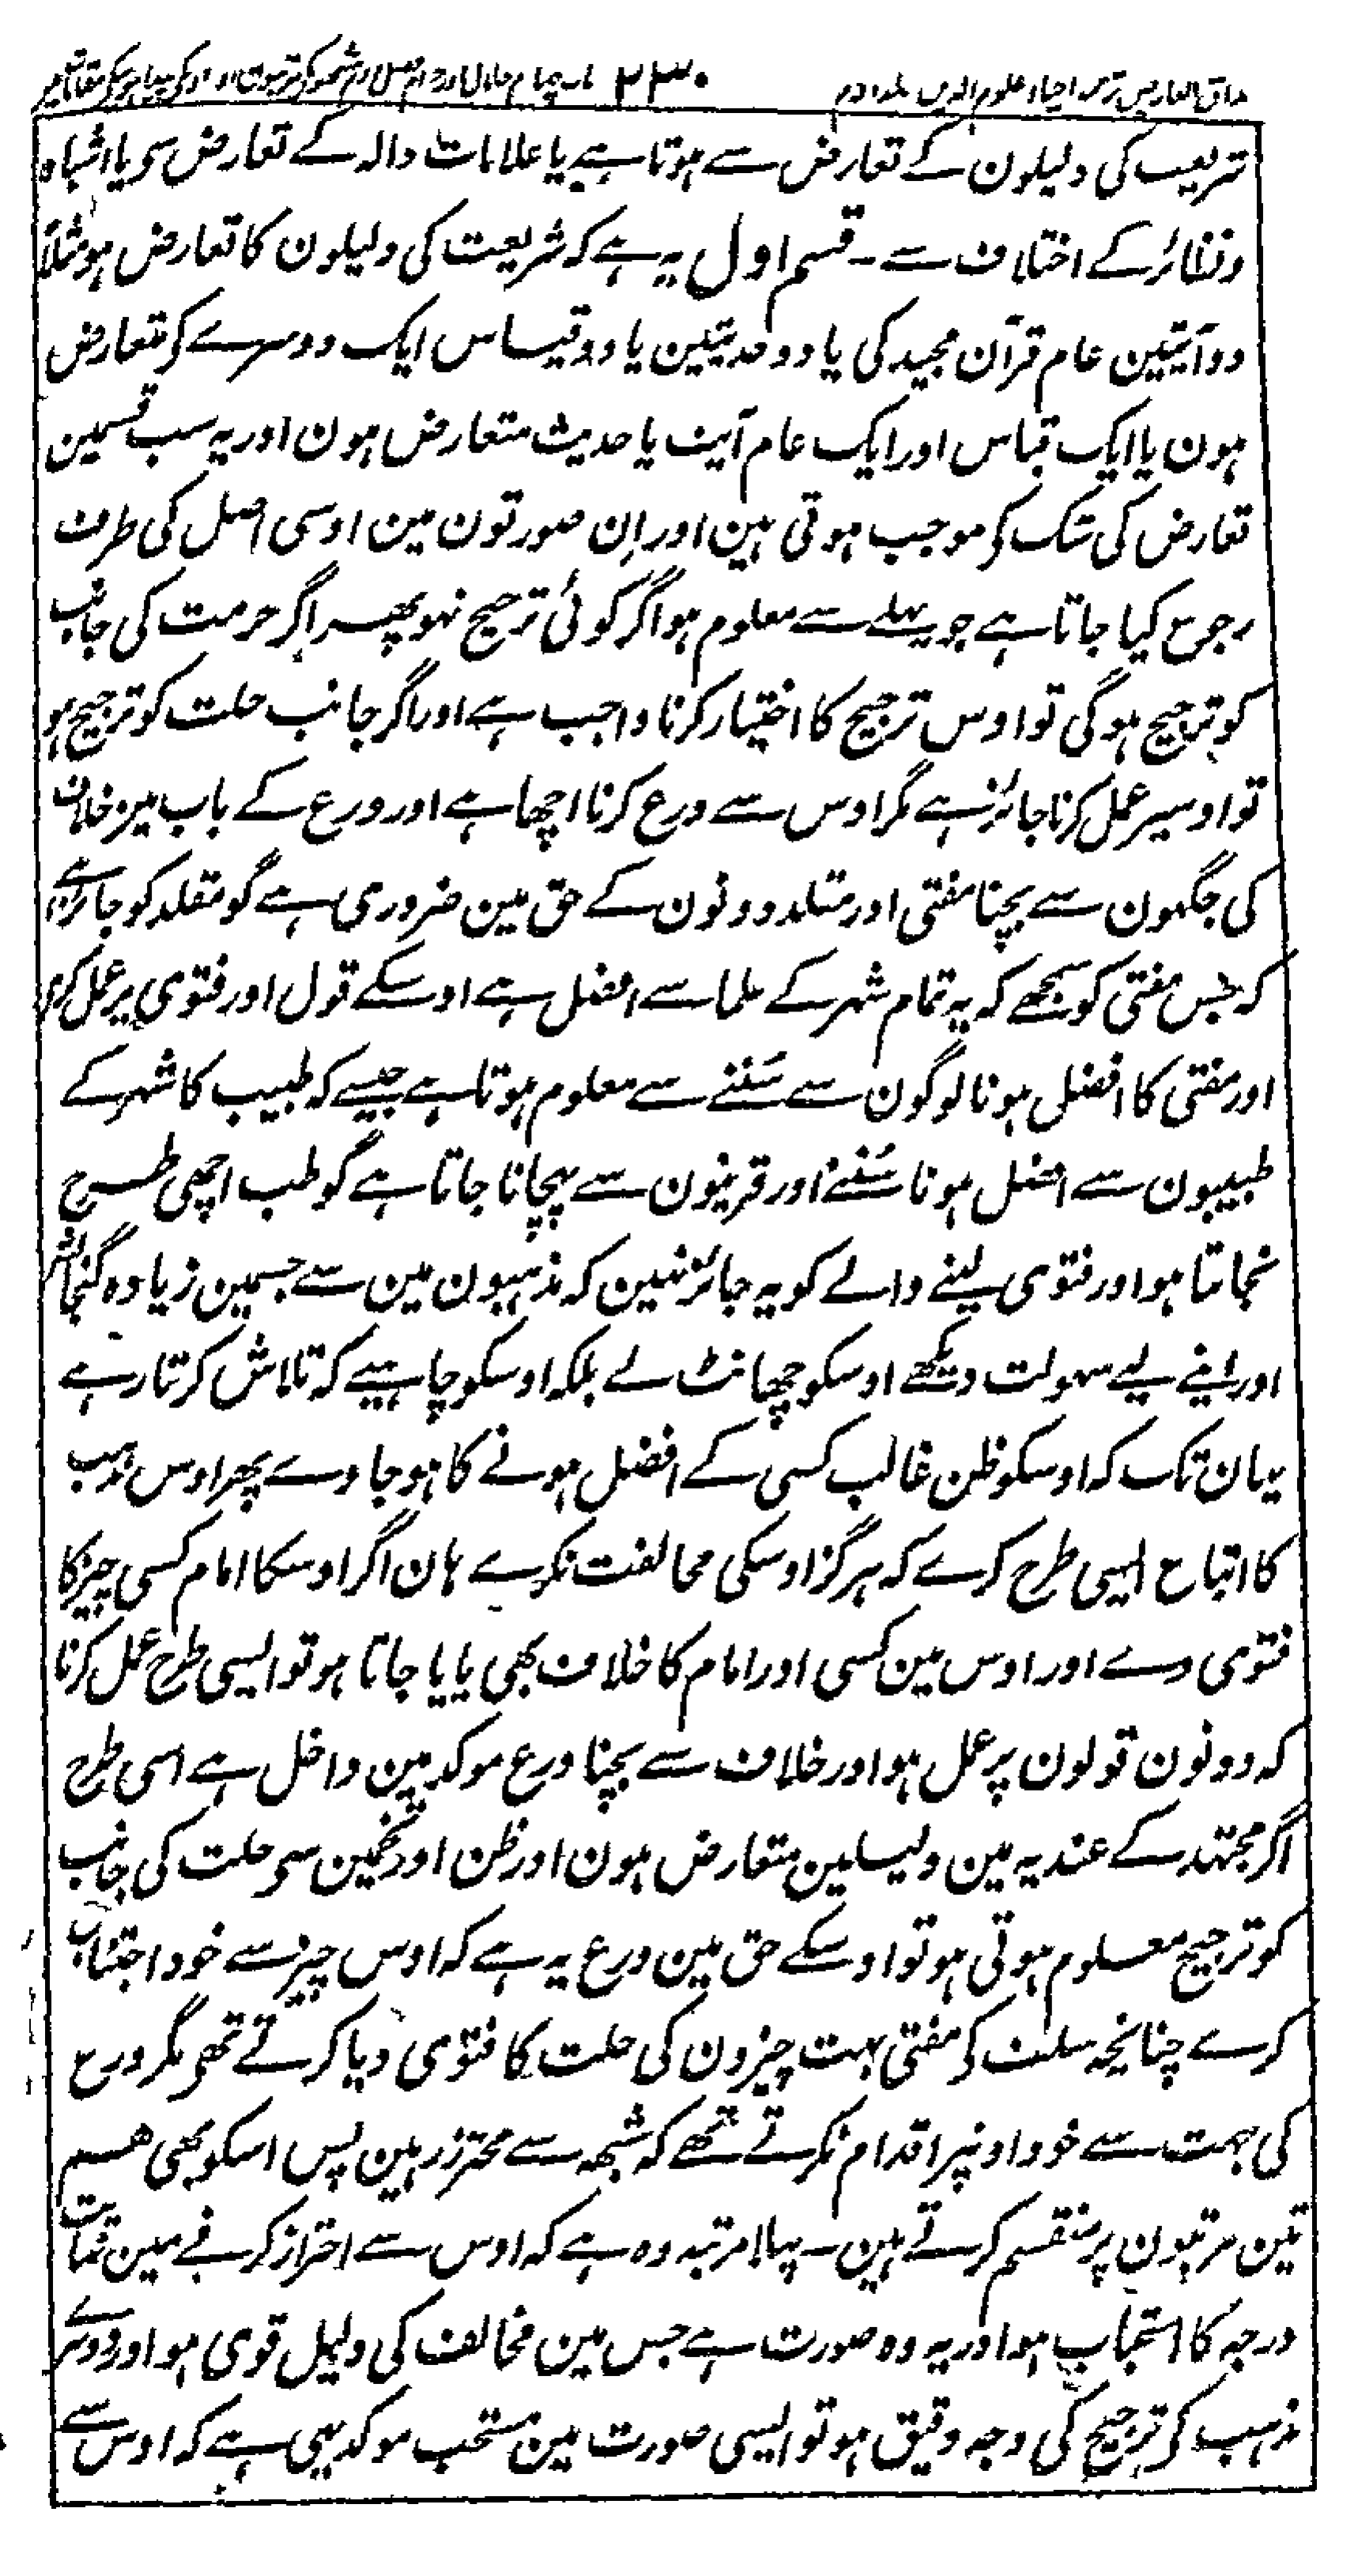 مذاق العارفین ترجمہ احیاء علوم الدین جلد دوم ۲۳۰ باب چہارم حلال اور حرام
شریعت کی دلیلون کے تعارض سے ہوتا ہے یا علامات دالہ کے تعارض سی یا اشباہ
و نظائر کے اختلاف سے ۔ قسم اول یہ ہے کہ شریعت کی دلیلون کا تعارض ہو مثلاً
دو آیتین عام قرآن مجید کی یا دو حدیثین یا دو قیاس ایک دوسرے کو متعارض
ہون یا ایک قیاس اور ایک عام آیت یا حدیث متعارض ہون اور یہ سب قسمین
تعارض کی شک کو موجب ہوتی ہین اور ان صورتون مین اوسی اصل کی طرف
رجوع کیا جاتا ہے جو پہلے سے معلوم ہو اگر کوئی ترجیح نہو پھر اگر حرمت کی جانب
کو ترجیح ہو گی تو اوس ترجیح کا اختیار کرنا واجب ہے اور اگر جانب حلت کو ترجیح ہو
تو اوسپر عمل کرنا جائز ہے مگر اوس سے ورع کرنا اچھا ہے اور ورع کے باب مین خلاف
کی جگہون سے بچنا مفتی اور مقلد دونون کے حق مین ضروری ہے گو مقلد کو جائز ہے
کہ جس مفتی کو سمجھے کہ یہ تمام شہر کے علما سے افضل ہے اوسکے قول اور فتوی پر عمل کرے
اور مفتی کا افضل ہونا لوگون سے سُننے سے معلوم ہوتا ہے جیسے کہ طبیب کا شہر کے
طبیبون سے افضل ہونا سُننے اور قرینون سے پہچانا جاتا ہے گو طب اچھی طرح
نجانتا ہو اور فتوی لینے والے کو یہ جائز نہین کہ مذہبون مین سے جسمین زیادہ گنجائش
اور اپنے لیے سہولت دیکھے اوسکو چھانٹ لے بلکہ اوسکو چاہیے کہ تلاش کرتا رہے
یہان تک کہ اوسکو ظن غالب کسی کے افضل ہونے کا ہو جاوے پھر اوس مذہب
کا اتباع ایسی طرح کرے کہ ہرگز اوسکی مخالفت نکرے ہان اگر اوسکا امام کسی چیز کا
فتوی دے اور اوس مین کسی اور امام کا خلاف بھی پایا جاتا ہو تو ایسی طرح عمل کرنا
کہ دونون قولون پر عمل ہو اور خلاف سے بچنا ورع موکد مین داخل ہے اسی طرح
اگر مجتہد کے عندیہ مین دلیلین متعارض ہون اور ظن اور تخمین سی حلت کی جانب
کو ترجیح معلوم ہوتی ہو تو اوسکے حق مین ورع یہ ہے کہ اوس چیز سے خود اجتناب
کرے چنانچہ سلف کی مفتی بہت چیزون کی حلت کا فتوی دیا کرتے تھی مگر ورع
کی جہت سے خود اونپر اقدام نکرتے تھے کہ شبہہ سے محترز رہین پس اسکو بھی ہم
تین مرتبون پر منقسم کرتے ہین ۔ پہلا مرتبہ وہ ہے کہ اوس سے احتراز کرنے مین نہایت
درجہ کا استحباب ہو اور یہ وہ صورت ہے جس مین مخالف کی دلیل قوی ہو اور دوسرے
مذہب کی ترجیح کی وجہ دقیق ہو تو ایسی صورت مین مستحب موکد یہی ہے کہ اوس سے